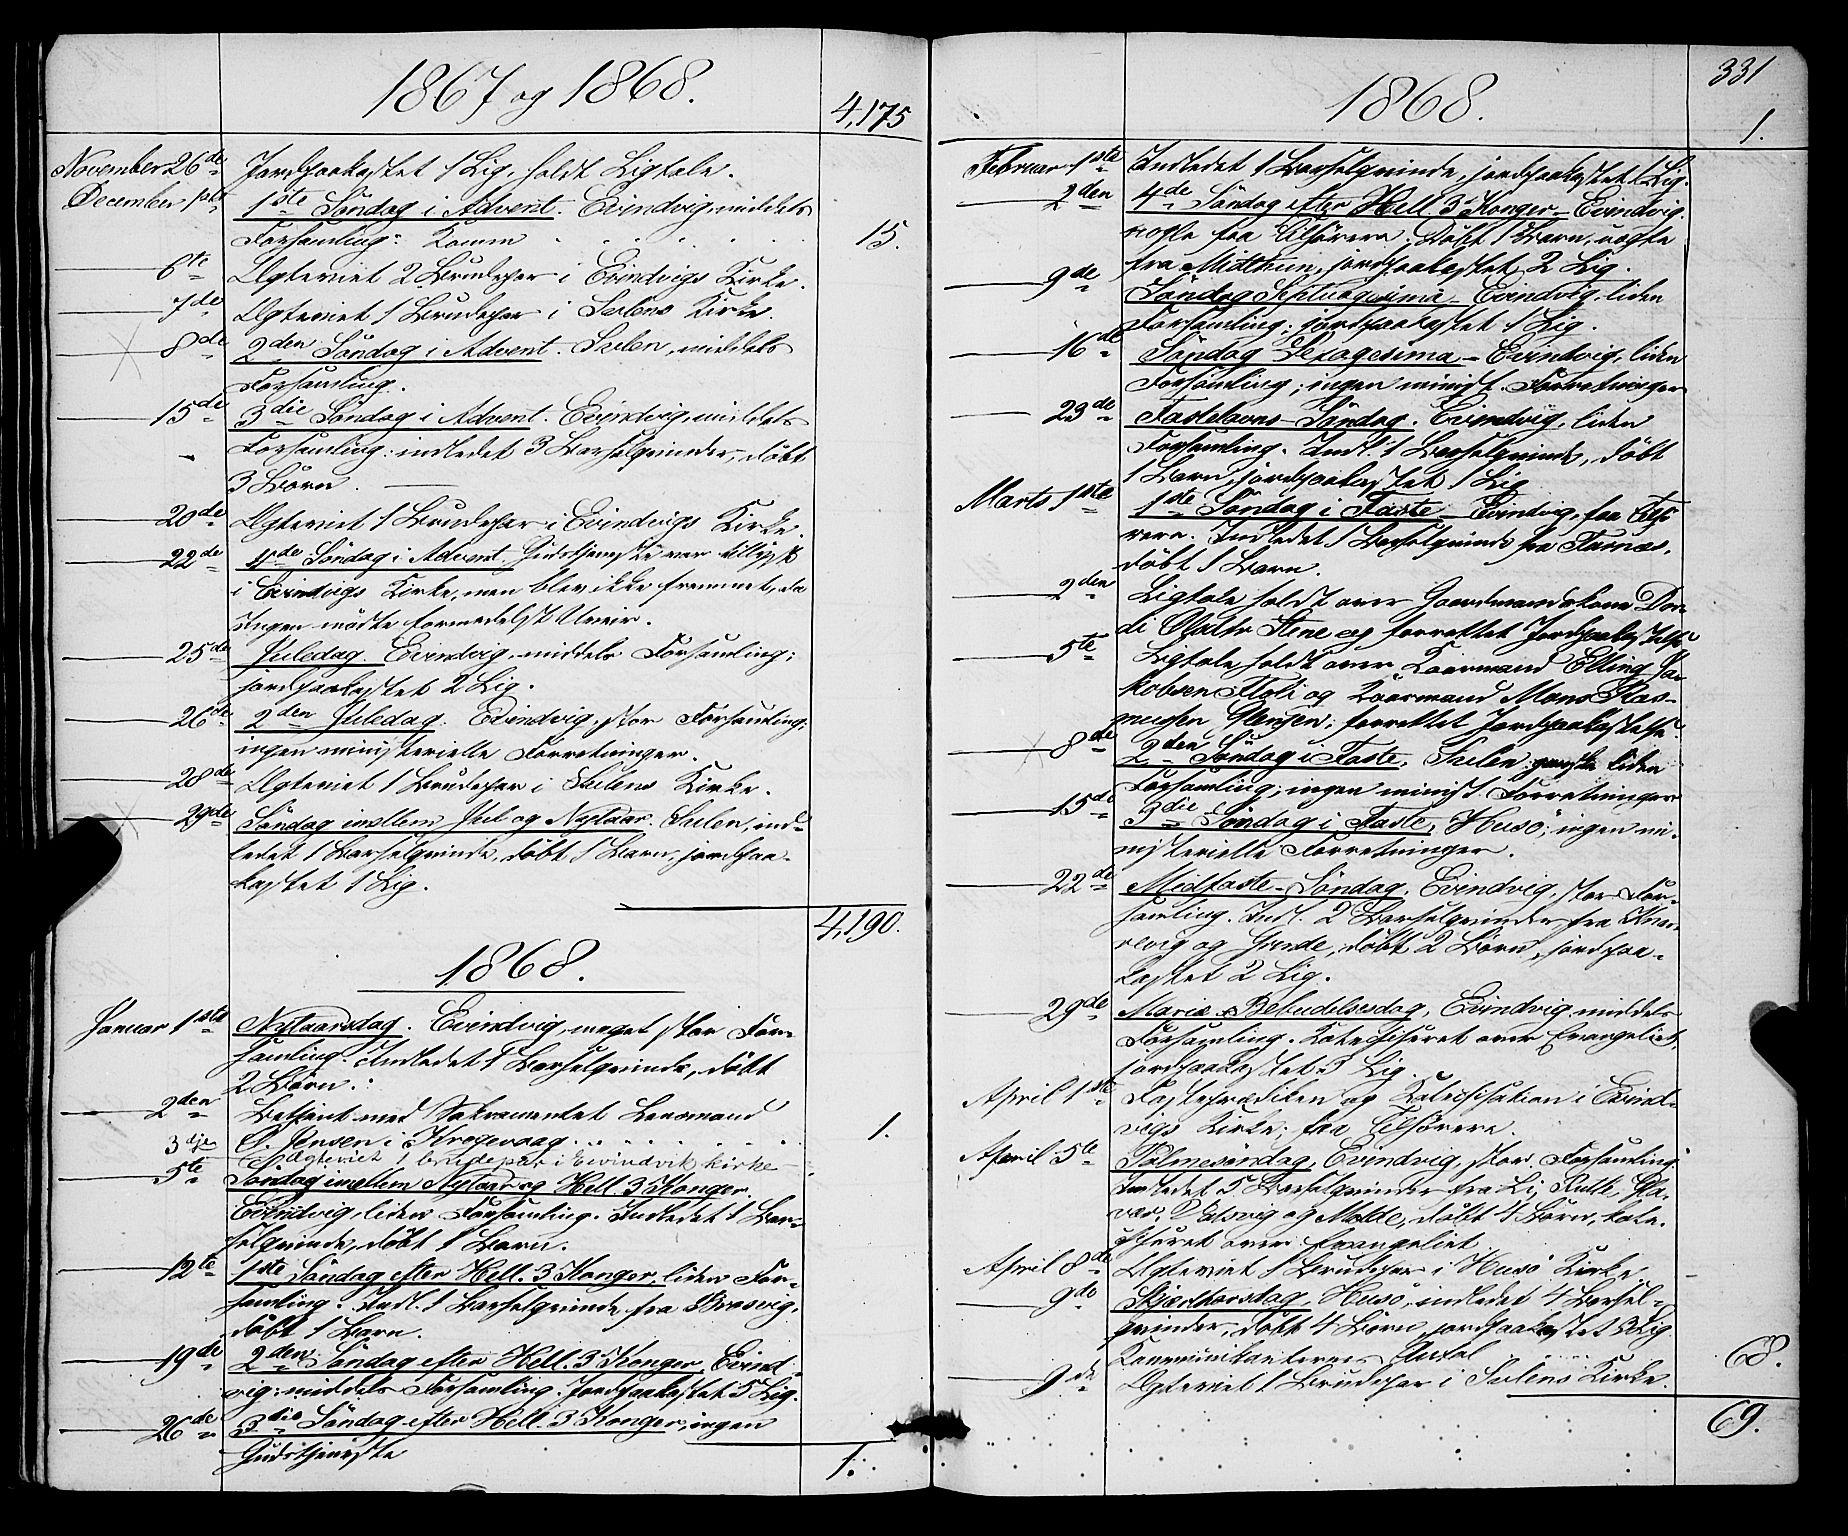 1867 og 1868.
4,175
November 26de Jordpaakastet 1 Lig, holdt Ligtale.
December 1ste 1ste Söndag i Advent. Evindvig, middels
Forsamling: Komm 15.
6te Egteviet 2 Brudepar i Evindvigs Kirke.
7de Egteviet 1 Brudepar i Sulens Kirke.
8de 2den Söndag i Advent. Sulen, middels
Forsamling.
15de 3die Söndag i Advent. Evindvig, middels
Forsamling: indledet 3 Barselqvinder, döbt
3 Börn.
20de Egteviet 1 Brudepar i Evindvigs Kirke.
22de 4de Söndag i Advent. Gudstjeneste var tillyst
i Evindvigs Kirke, men blev ikke fremmet, da
Ingen mödte formedelst Uveir.
25de Juledag. Evindvig, middels Forsamling;
jordpaakastet 2 Lig.
26de 2den Juledag. Evindvig, stor Forsamling;
ingen ministerielle Forretninger.
28de Egteviet 1 Brudepar i Sulens Kirke.
29de Söndag imellem Jul og Nytaar. Sulen, ind-
ledet 1 Barselqvinde, döbt 1 Barn, jordpaa-
kastet 1 Lig.
4,190.
1868.
Januar 1ste Nytaarsdag. Evindvig, meget stor For-
samling. Indledet 1 Barselqvinde, döbt
2 Börn.
2den Betjent med Sakramentet Lensmand
O. Jensen i 1.
3dje Ægteviet 1 brudepar i Eivindvik kirke
5te Söndag imellem Nytaar og Hell. 3 Konger.
Evindvig, liden Forsamling. Indledet 1 Bar-
selqvinde, döbt 1 Barn.
12te 1ste Söndag efter Hell. 3 Konger, liden For-
samling. Indl. 1 Barselqvinde fra
döbt 1 Barn.
19de 2den Söndag efter Hell. 3 Konger, Evind-
vig; middels Forsamling. Jordpaakastet 5 Lig.
26de 3die Söndag efter Hell. 3 Konger, ingen
Gudstjeneste
1.
331
1868.
1.
Februar 1ste Indledet 1 Barselqvinde, jordpaakastet 1 Lig.
2den 4de Söndag efter Hell. 3 Konger – Evindvig.
nogle faa Tilhörere. Döbt 1 Barn,
fra Midttun, jordpaakastet 2 Lig.
9de Söndag Septuagesima – Evindvig, liden
Forsamling; jordpaakastet 1 Lig.
16de Söndag Sexagesima – Evindvig, liden
Forsamling; ingen minist. Forretninger
23de Fastelavns-Söndag. Evindvig, liden
Forsamling. Indl. 1 Barselqvinde, döbt
1 Barn, jordpaakastet 1 Lig
Marts 1ste 1ste Söndag i Faste – Evindvig, faa Tilhö
rere. Indledet 1 Barselqvinde fra
döbt 1 Barn.
2den Ligtale holdt over Gaardmandskone Dor-
di Olsdtr Stene og forrettet Jordpaakastelse
5te Ligtale holdt over Kaarmand Elling Ja-
kobsen Floli og Kaarmand Mons Ras-
mussen Glenjen; forrettet Jordpaakastelse.
8de 2den Söndag i Faste, Sulen liden
Forsamling; ingen minist. Forretninger
15de 3die Söndag i Faste, Husö; ingen mi-
nisterielle Forretninger.
22de Midfaste-Söndag, Evindvig, stor For-
samling. Indl. 2 Barselqvinder fra Kva-
revig og Grinde, döbt 2 Börn, jordpaa-
kastet 2 Lig.
29de Mariæ-Bebudelsesdag, Evindvig, middels
Forsamling. Katechiseret over Evangeliet,
jordpaakastet 3 Lig.
April 1ste Fasteprædiken og Katechisation i Evind-
vigs Kirke; faa Tilhörere.
April 5te Palmesöndag, Evindvig, stor Forsamling
Indledet 5 Barselqvinder fra Li,
og Molde; döbt 4 Börn, kate-
chiseret over Evangeliet.
April 8de Egteviet 1 Brudepar i Husö Kirke
9de Skjærthorsdag, Husö, indledet 4 Barsel-
qvinder, döbt 4 Börn, jordpaakastet 3 Lig.
Kommunikanternes Antal 68.
9de Egteviet 1 Brudepar i Sulens Kirke.
69.